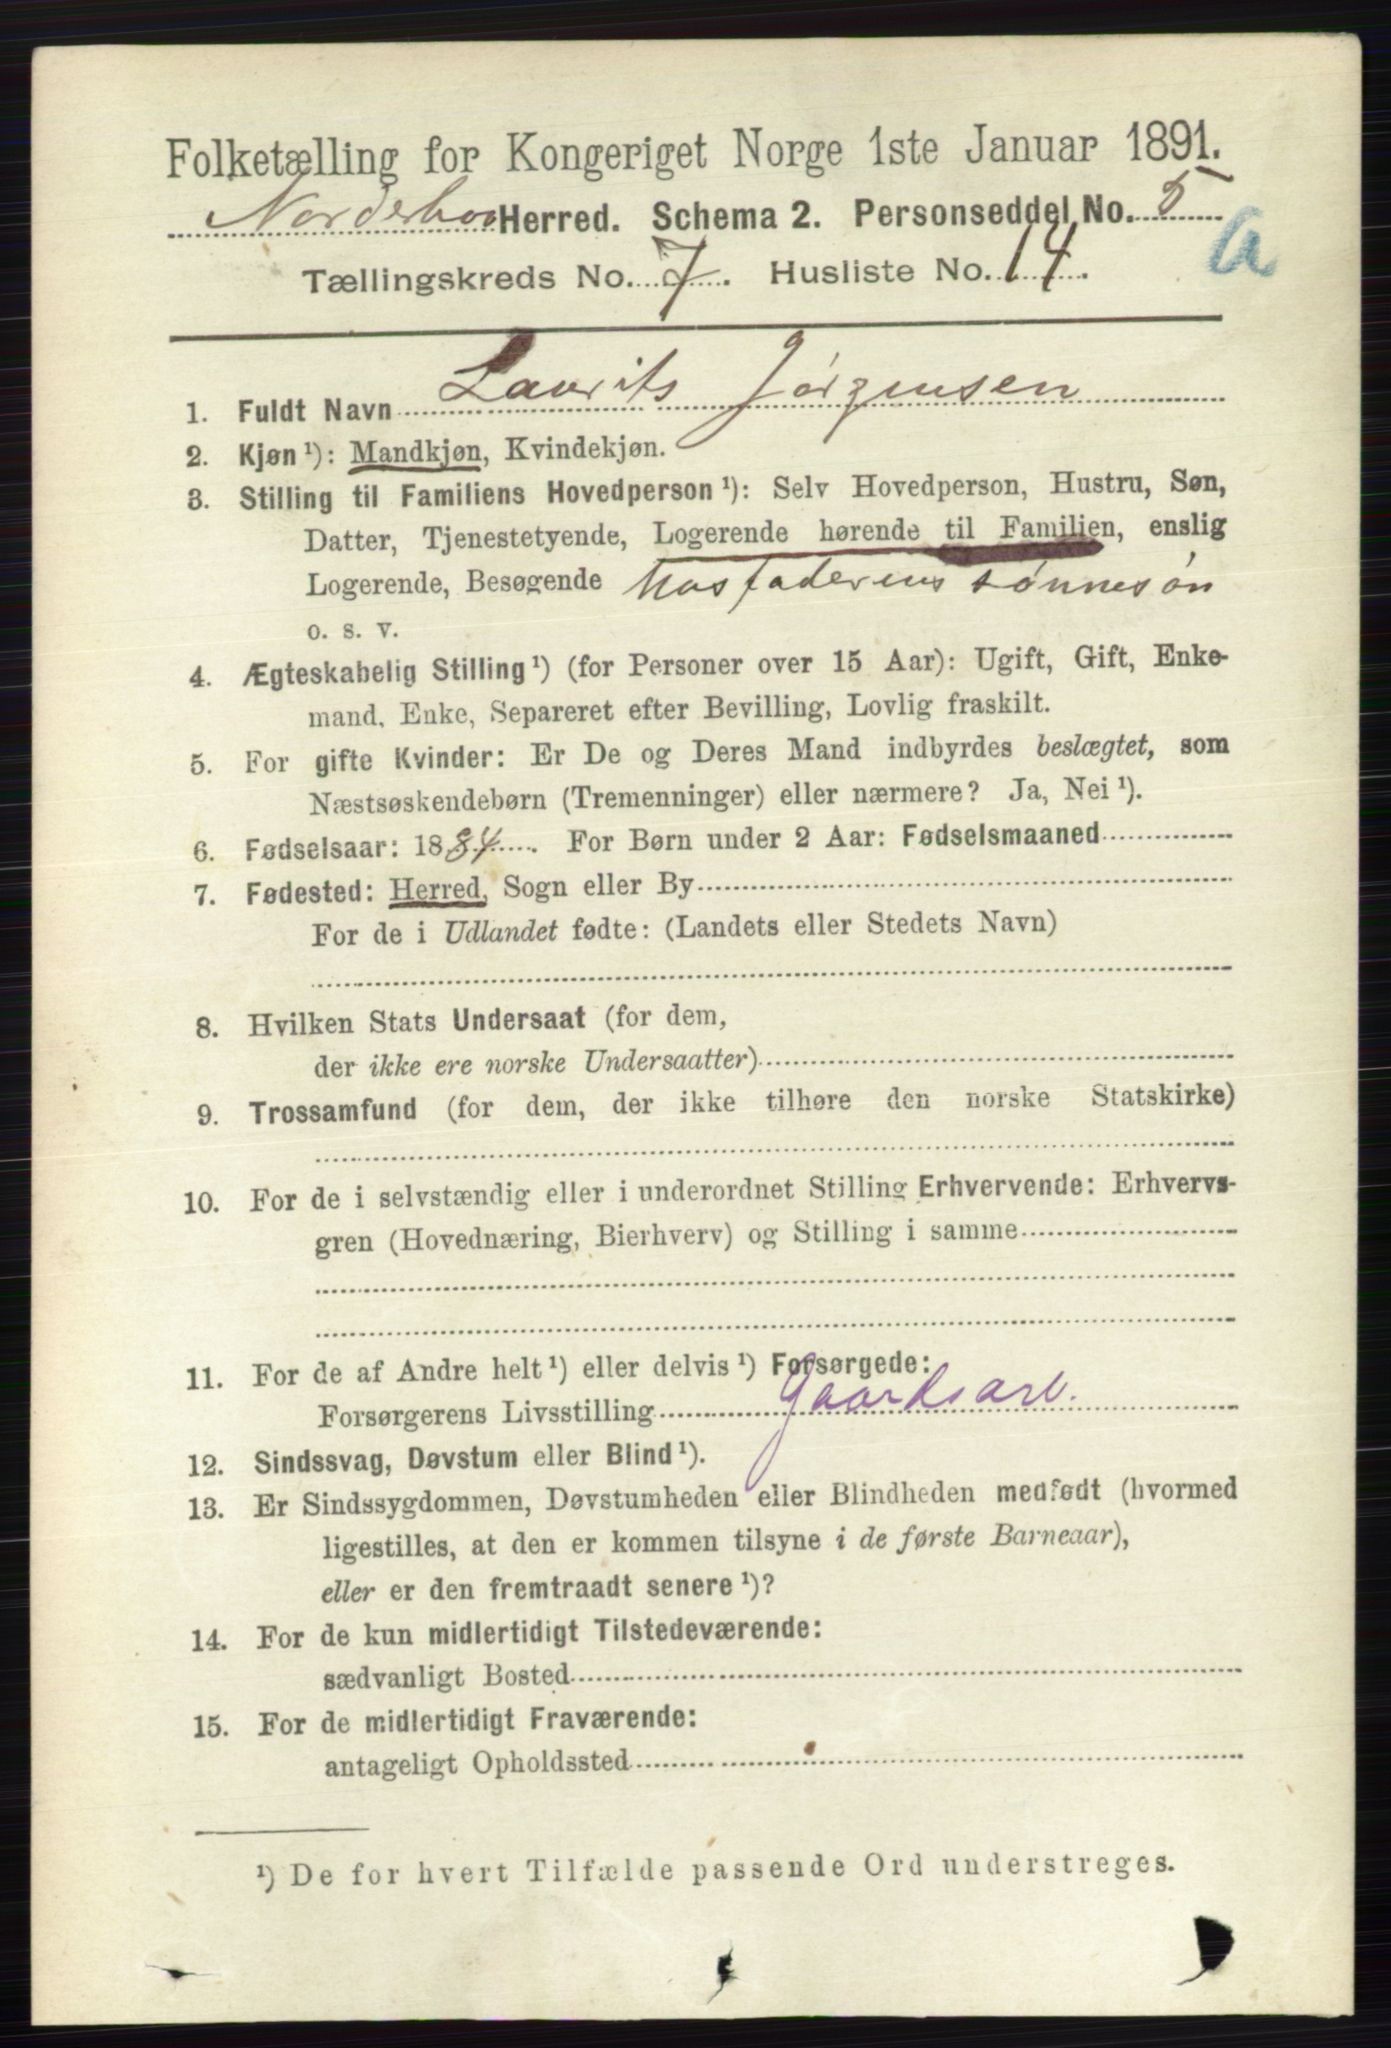 Folketælling for Kongeriget Norge 1ste Januar 1891.
Norderhov Herred. Schema 2. Personseddel No. 5
a
Tællingskreds No. 7. Husliste No. 14.
1. Fuldt Navn Laurits Jörgensen
2. Kjøn ¹): Mandkjøn, Kvindekjøn.
3. Stilling til Familiens Hovedperson ¹): Selv Hovedperson, Hustru, Søn,
Datter, Tjenestetyende, Logerende hørende til Familien, enslig
Logerende, Besøgende Husfaderens sönnesön
o. s. v.
4. Ægteskabelig Stilling ¹) (for Personer over 15 Aar): Ugift, Gift, Enke-
mand, Enke, Separeret efter Bevilling, Lovlig fraskilt.
5. For gifte Kvinder: Er De og Deres Mand indbyrdes beslægtet, som
Næstsøskendebørn (Tremenninger) eller nærmere? Ja, Nei ¹).
6. Fødselsaar: 1884. For Børn under 2 Aar: Fødselsmaaned
7. Fødested: Herred, Sogn eller By
For de i Udlandet fødte: (Landets eller Stedets Navn)
8. Hvilken Stats Undersaat (for dem,
der ikke ere norske Undersaatter)
9. Trossamfund (for dem, der ikke tilhøre den norske Statskirke)
10. For de i selvstændig eller i underordnet Stilling Erhvervende: Erhvervs-
gren (Hovednæring, Bierhverv) og Stilling i samme
11. For de af Andre helt ¹) eller delvis ¹) Forsørgede:
Forsørgerens Livsstilling Gaardsarb.
12. Sindssvag, Døvstum eller Blind ¹).
13. Er Sindssygdommen, Døvstumheden eller Blindheden medfødt (hvormed
ligestilles, at den er kommen tilsyne i de første Barneaar),
eller er den fremtraadt senere ¹)?
14. For de kun midlertidigt Tilstedeværende:
sædvanligt Bosted
15. For de midlertidigt Fraværende:
antageligt Opholdssted
¹) De for hvert Tilfælde passende Ord understreges.